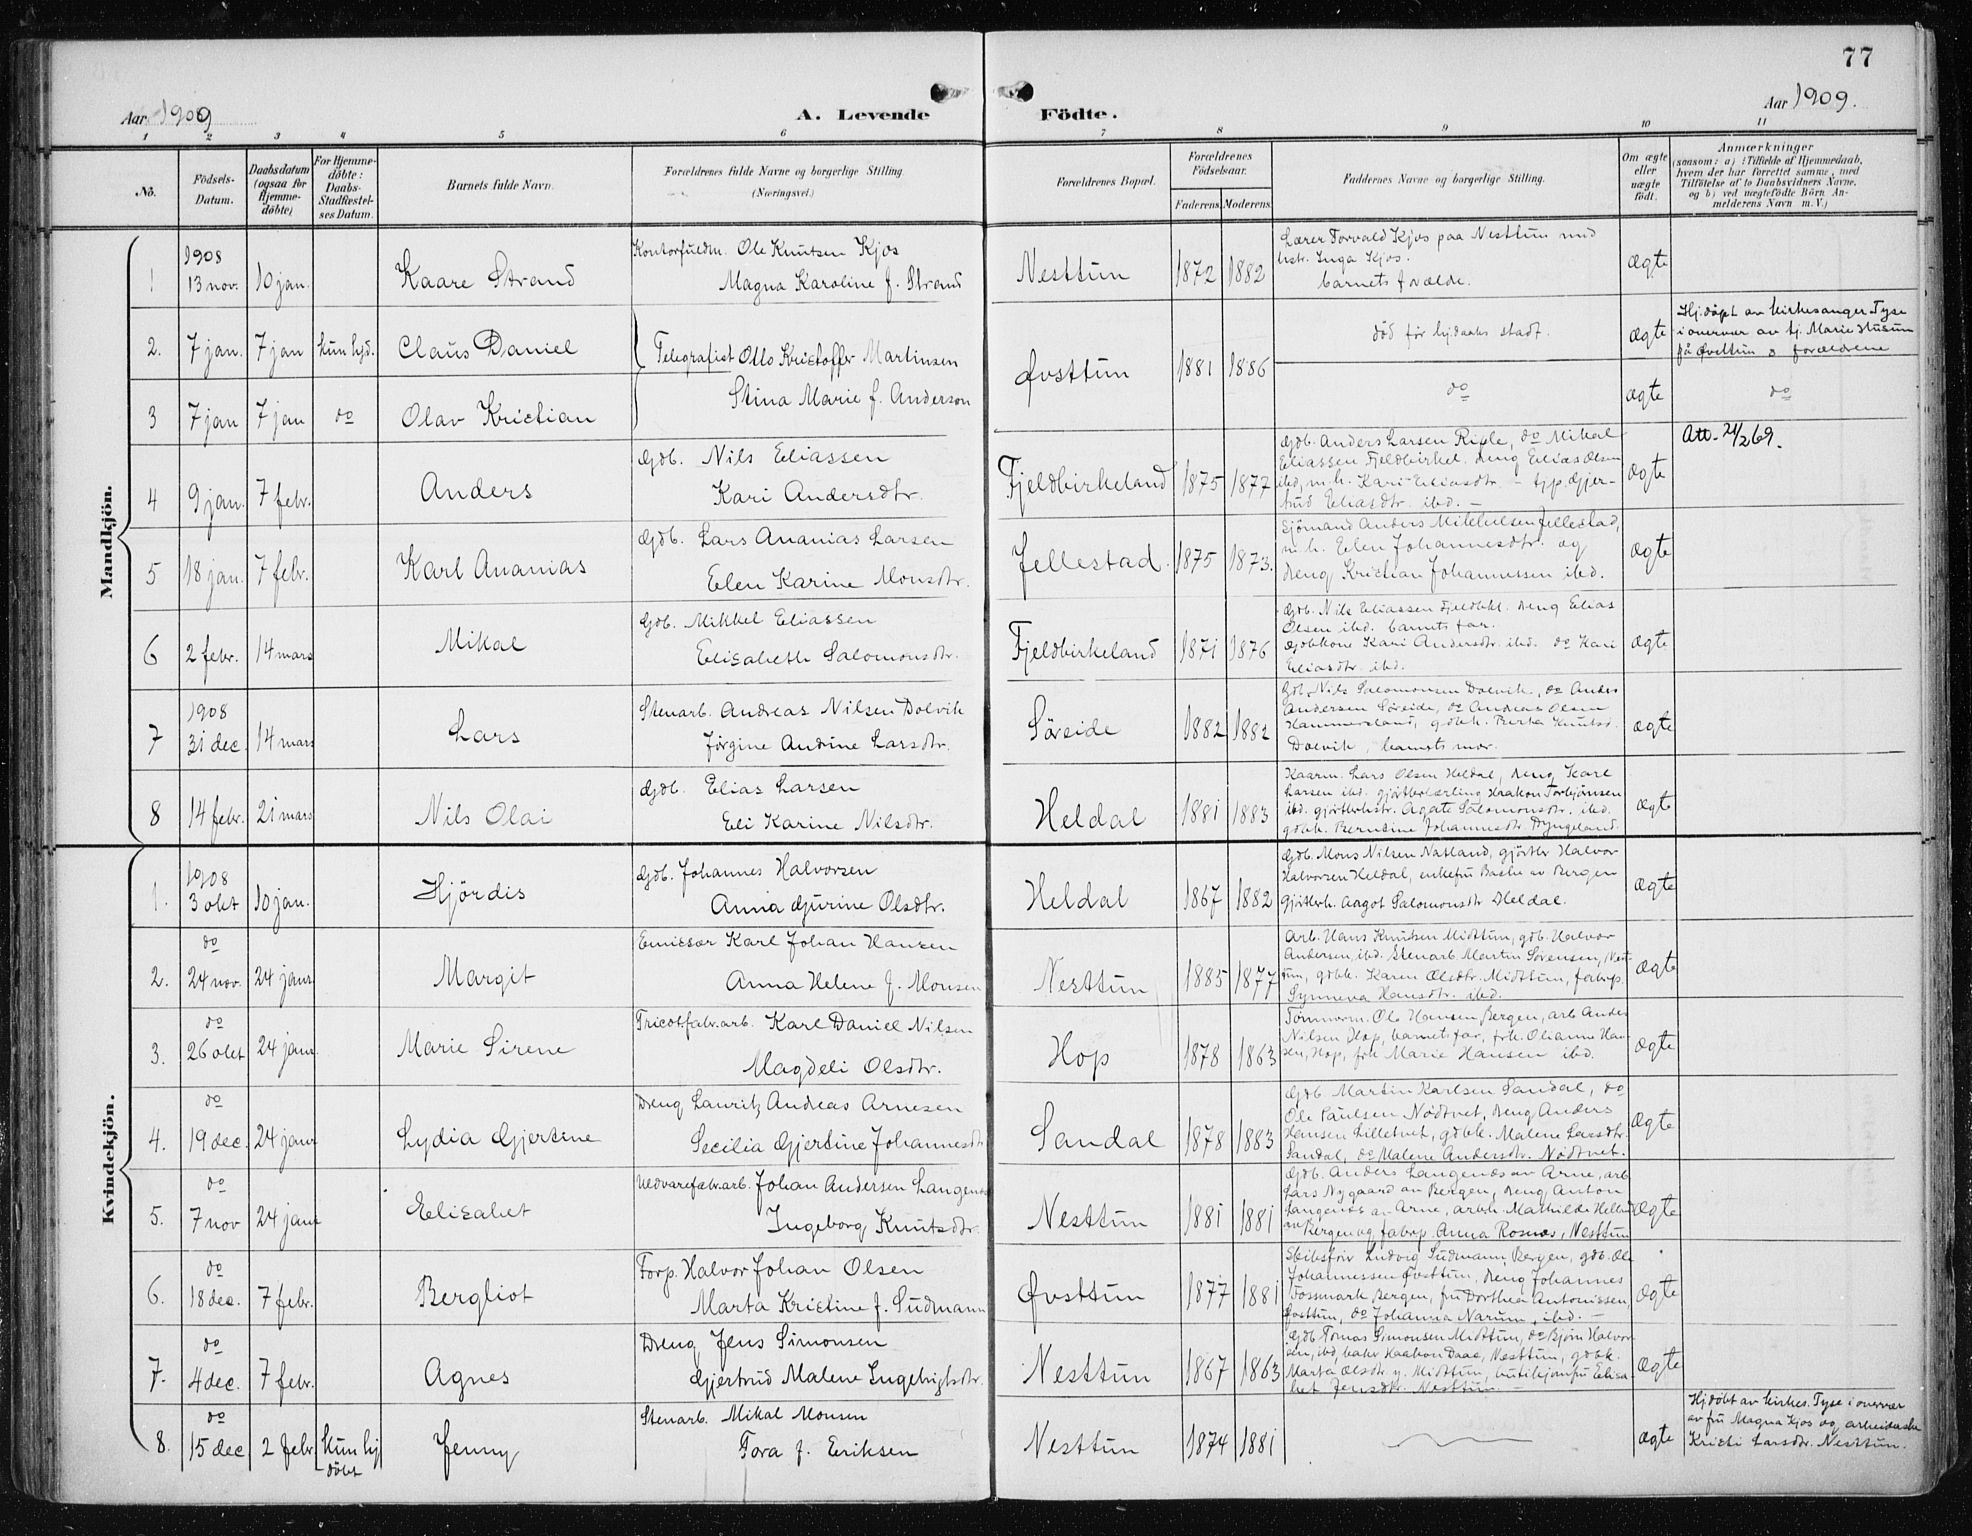 77
Aar 1909
A. Levende Födte.
Aar 1909.
1 2 3 4 5 6 7 8 9 10 11
No.
Födsels-Datum.
Daabsdatum (ogsaa for Hjemme-döbte)
For Hjemme-döbte: Daabs-Stadfæstel-ses Datum.
Barnets fulde Navn.
Forældrenes fulde Navne og borgerlige Stilling. (Næringsvei.)
Forældrenes Bopæl.
Forældrenes Födselsaar.
Faderens. Moderens.
Faddernes Navne og borgerlige Stilling.
Om ægte eller uægte födt.
Anmærkninger
(saasom: a) i Tilfælde af Hjemmedaab,
hvem der har forrettet samme, med
Tilföielse af to Daabsvidners Navne,
og b) ved uægtefödte Börn An-
melderens Navn m. V.)
Mandkjön.
1 1908 13 nov. 10 jan. Kaare Strand
Kontorfuldm. Ole Knutsen Kjos
Magna Karoline f. Strand
Nesttun 1872 1882
Lærer Torvald Kjos paa Nesttun med
hstr. Inga Kjos.
barnets forældre.
ægte
2. 7 jan. 7 jan kun hjd. Claus Daniel
Telegrafist Otto Kristoffer Martinsen
Stina Marie f. Anderson
Øvsttun 1881 1886
død før hjdaabs stadf.
ægte
Hj.døpt av kirkesanger Tyse
i overvær av tj. Marie Husum
på Øvsttun & forældrene
3 7 jan 7 jan do Olav Kristian
do ægte do
4 9 jan. 7 febr. Anders
Gdb. Nils Eliassen
Kari Andersdtr.
Fjeldbirkeland 1875 1877
Gdb. Anders Larsen Riple, do Mikal
Eliassen Fjeldbirkel. dreng Elias Olsen
ibd, m.h. Kari Eliasdtr. - tjp. Gjer-
trud Eliasdtr. ibd. -
ægte
Att. 21/2 69.
5 18 jan. 7 febr. Karl Ananias
Gdb. Lars Ananias Larsen
Elen Karine Monsdtr.
Fellestad. 1875 1873.
Sjömand Anders Mikkelsen Fellestad,
m.h. Elen Johannesdtr. og
dreng Kristian Johannessen ibd.
ægte
6 2 febr. 14 mars Mikal
Gdb. Mikkel Eliassen
Elisabeth Salomonsdtr.
Fjeldbirkeland 1871 1876
Gdb. Nils Eliassen Fjeldbkl. dreng Elias
Olsen ibd. barnets far.
Gdbkone Kari Andersdtr. ibd. do Kari
Eliasdtr. ibd.
ægte
7 1908 31 dec. 14 mars Lars
Stenarb. Andreas Nilsen Dolvik
Jörgine Andrine Larsdtr.
Söreide 1882 1882
Gdb. Nils Salomonsen Dolvik, do Anders
Andersen Søreide, do Andreas Olsen
Hammersland, gdbk. Berta Knutsd.
Dolvik, barnets mor.
ægte
8 14 febr. 21 mars Nils Olai
Gdb. Elias Larsen
Eli Karine Nilsdtr.
Heldal 1881 1883
Kaarm. Lars Olsen Heldal, dreng Karl
Larsen ibd. gjørtlerlærling Haakon Torbjönsen
ibd. gjørtlerhstr. Agate Salomonsdtr. ibd.
gdbk. Berntine Johannesdtr. Dyngeland.
ægte
Kvindekjön.
1. 1908 3 okt 10 jan. Hjördis
Gdb. Johannes Halvorsen
Anna Gurine Olsdtr.
Heldal 1867 1882
Gdb. Mons Nilsen Natland, gjörtler Halvor
Halvorsen Heldal, enkefru Bache av Bergen
Gjörtlerh. Aagot Salomonsdtr Heldal.
ægte
2. do 24 nov. 24 jans Margit
Emissær Karl Johan Hansen
Anna Helene f. Monsen
Nesttun 1885 1877
Arb. Hans Knutsen Midttun, gdb. Halvor
Andersen, ibd. Stenarb. Martin Sörensen, Nest-
tun, gdbk. Karen Olsdtr. Midttun, fabrp.
Synneva Hansdtr. ibd.
ægte
3. do 26 okt 24 jans Marie Sirene
Tricotfabr.arb. Karl Daniel Nilsen
Magdeli Olsdtr.
Hop 1878 1863
Tömmerm. Ole Hansen Bergen, arb. Anders
Nilsen Hop, barnets far, frk. Olianne Han-
sen, Hop, frk Marie Hansen ibd.
ægte
4. do 19 dec. 24 jans Lydia Gjertine
Dreng Lauritz Andreas Arnesen
Secilia Gjertine Johannesdtr
Sandal 1878 1883
Gdb. Martin Karlsen Sandal, do
Ole Paulsen Nödtvet, dreng Anders
Hansen Lilletvet, gdbk. Malene Larsdtr.
Sandal, do Malene Andersdtr. Nödtvet.
ægte
5. do 7 nov 24 jans Elisabet
Uldvarefabr.arb. Johan Andersen Langenes
Ingeborg Knutsdtr.
Nesttun 1881 1881
Gdb. Anders Langenes av Arne, arb
Lars Nygaard av Bergen, dreng Anton
Langenes av Arne, arbk. Mathilde
av Bergen og fabrp. Anna Rosnes, Nesttun
ægte
6. do 18 dec. 7 febr. Bergliot
Forp. Halvor Johan Olsen
Marta Kristine f. Sudmann
Øvsttun 1877 1881
Skibsför. Ludvig Sudmann, Bergen, gdb. Ole
Johannessen Øvsttun, dreng Johannes
Vossmark Bergen, fru Dorthea Antonissen,
Øvsttun, do Johanna Narum, ibd. -
ægte
7. do 4 dec. 7 febr. Agnes
Dreng Jens Simonsen
Gjertrud Malene Ingebrigtsdtr.
Nesttun 1867 1863
Gdb Tomas Simonsen Midttun, do Björn Halvor
sen, ibd, baker Haakon Daae, Nesttun, gdbk.
Marta Olsdtr. y. Midttun, butikjomfru Elisa-
bet Jensdtr. Nesttun. -
ægte
8. do 15 dec 2 febr kun hj döbt Jenny
Stenarb. Mikal Monsen
Tora f. Eriksen
Nesttun 1874 1881
ægte
Hj.döbt av kirkes. Tyse i overvær
av fru Magna Kjos og arbeiderske
Kristi Larsdtr. Nesttun.